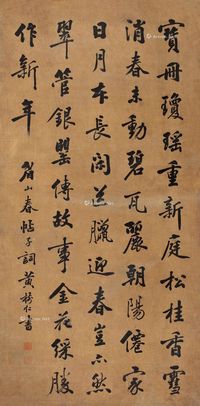 寶冊瓊瑤重新庭松桂香雪
消春未動碧瓦麗朝陽僊家
日月本長閑送臘迎春豈亦然
翠管銀罌傳故事金花綵勝
作新年 眉山春帖子詞 黃仁書